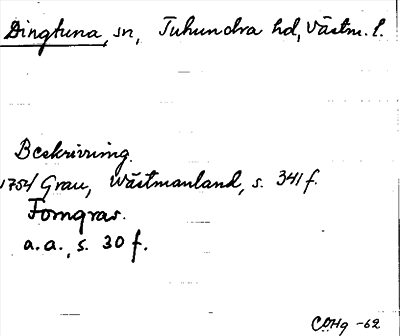 Dingtuna, sn, Tuhundra hd, Västm. l.
Beskrivning.
1754 Grau, Wästmanland, s. 341 f.
Forngrav.
a.a., s. 30 f.
-62